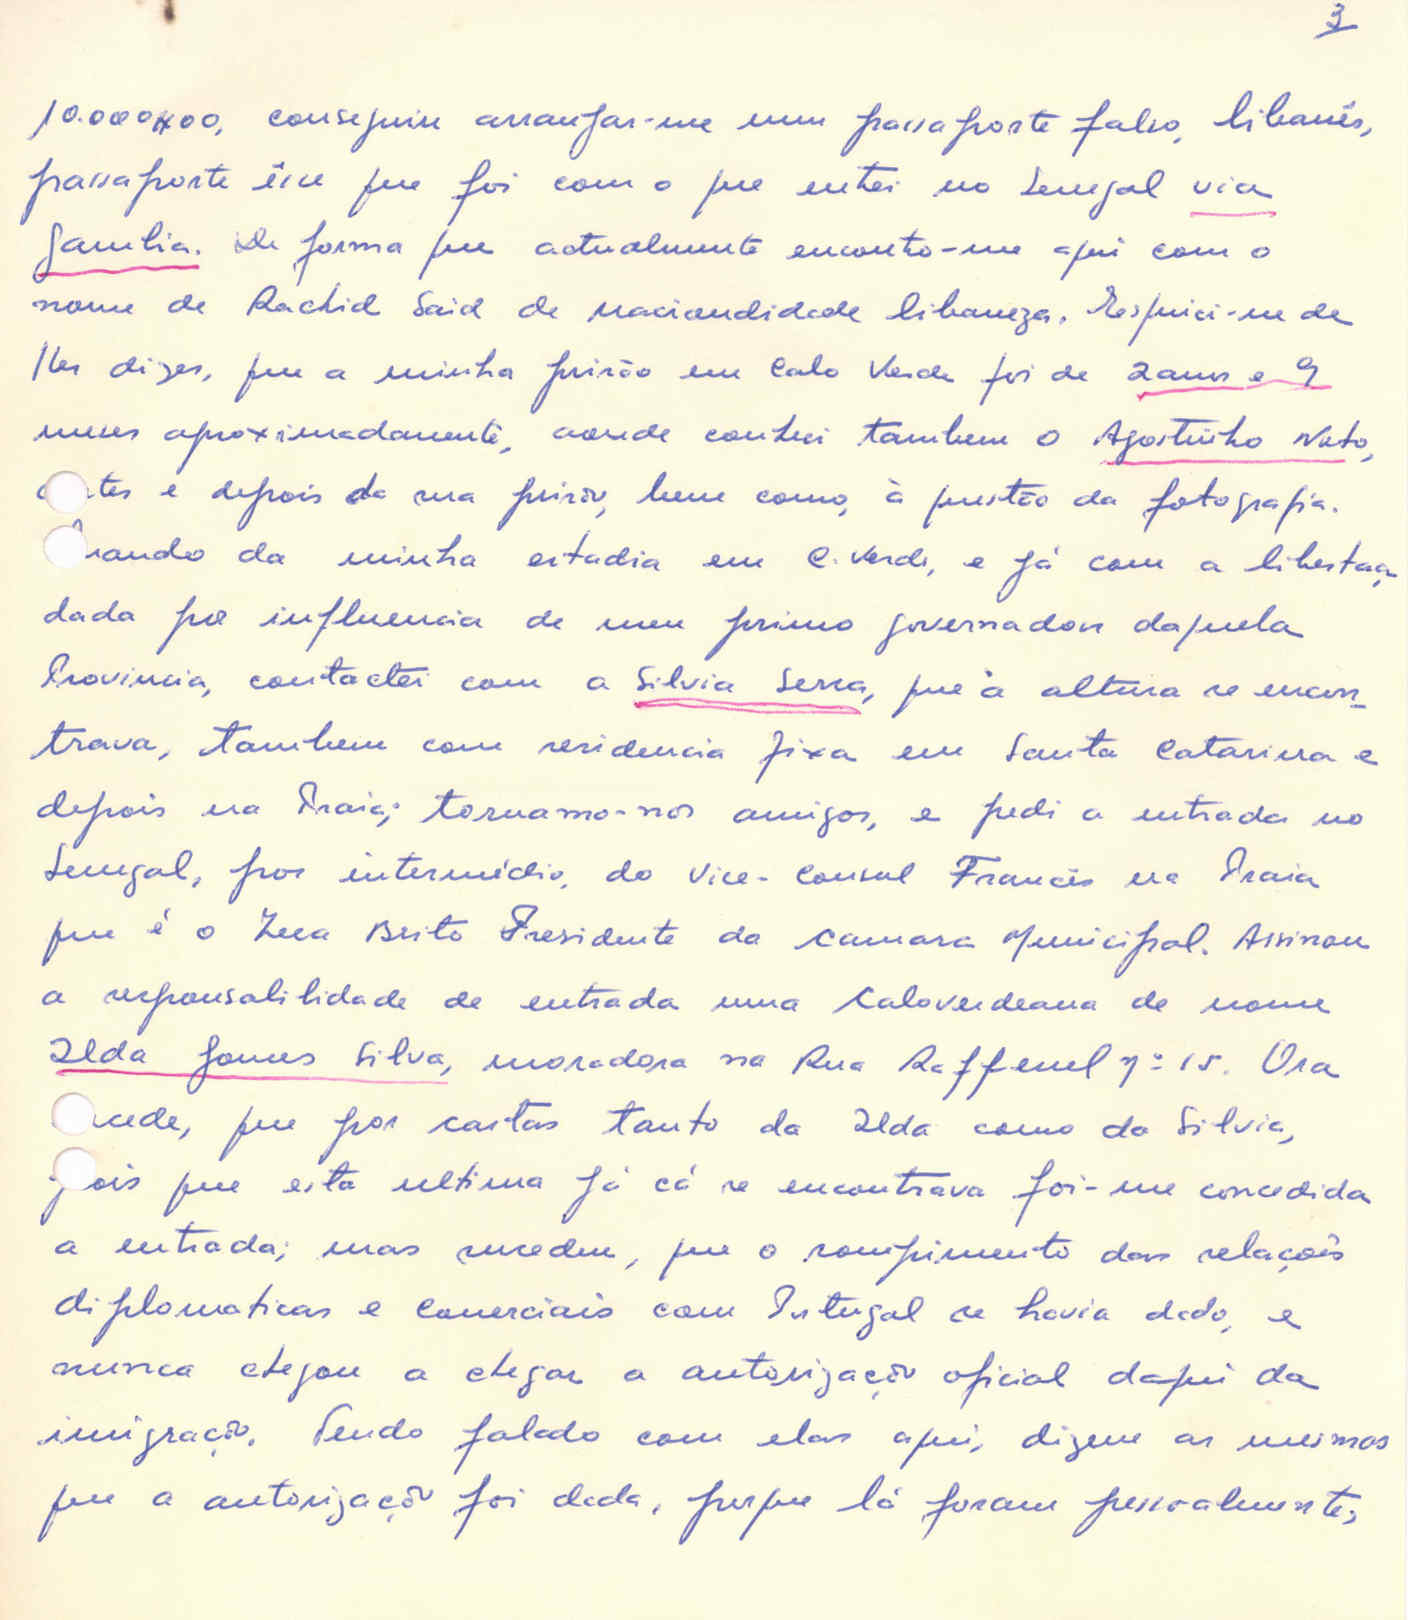 3
10.000$00, conseguiu arranjar-me um passaporte falso, libanês,
passaporte êsse que foi com o que entrei no Senegal via
Gambia. De forma que actualmente encontro-me aqui com o
nome de Rachid Said de nacionalidade libaneza. Esqueci-me de
lhes dizer, que a minha prisão em Cabo Verde foi de 2 anos e 9
meses aproximadamente, aonde conheci tambem o Agostinho Neto,
antes e depois da sua prisão, bem como, à questão da fotografia.
Quando da minha estadia em C. Verde, e já com a libertaç
dada por influencia de meu primo governador daquela
Provincia, contactei com a Silvia Serra, que à altura se encon-
trava, tambem com residencia fixa em Santa Catarina e
depois na Praia; tornamo-nos amigos, e pedi a entrada no
Senegal, por intermédio, do Vice-Consul Francês na Praia
que é o Zeca Brito Presidente da Camara Municipal. Assinou
a responsabilidade de entrada uma Caboverdeana de nome
Ilda Gomes Silva, moradora na Rua Raffenel nº 15. Ora
sucede, que por cartas tanto da Ilda como da Silvia,
pois que esta ultima já cá se encontrava foi-me concedida
a entrada; mas sucedeu, que o rompimento das relações
diplomaticas e comerciais com Portugal se havia dado, e
nunca chegou a chegar a autorização oficial daqui da
imigração. Tendo falado com elas aqui, dizem as mesmas
que a autorização foi dada, porque lá foram pessoalmente,